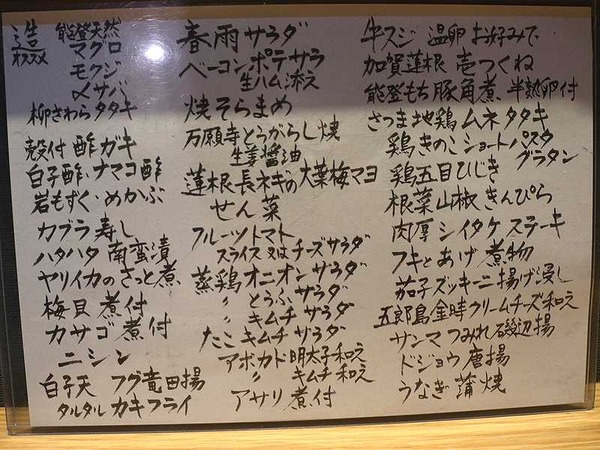 造 能登天然
オススメ マグロ
モクジ
〆サバ
柳さわら タタキ
殻付 酢ガキ
白子酢・ナマコ酢
岩もずく・めかぶ
カブラ寿し
ハタハタ 南蛮漬
ヤリイカの さっと煮
梅貝 煮付
カサゴ 煮付
ニシン
白子天 フグ竜田揚
タルタル カキフライ
春雨サラダ
ベーコンポテサラ
生ハム添え
焼そらまめ
万願寺とうがらし焼
生姜醤油
蓮根長ネギの大葉梅マヨ
せん菜
フルーツトマト
スライス又はチーズサラダ
蒸鶏オニオンサラダ
〃 とうふサラダ
〃 キムチサラダ
たこ キムチ サラダ
アボカド明太子和え
〃 キムチ和え
アサリ 煮付
牛スジ 温卵 お好みで
加賀蓮根 壱つくね
能登もち豚角煮 半熟卵付
さつま地鶏ムネタタキ
鶏きのこショートパスタ
グラタン
鶏五目ひじき
根菜山椒きんぴら
肉厚シイタケステーキ
フキとあげ煮物
茄子ズッキーニ揚げ浸し
五郎島金時クリームチーズ和え
サンマつみれ磯辺揚
ドジョウ唐揚
うなぎ蒲焼